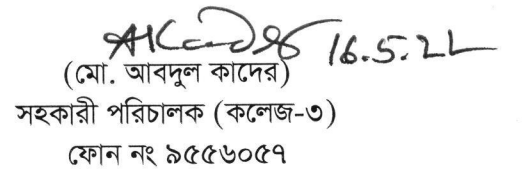 16.5.22
(মো. আবদুল কাদের)
সহকারী পরিচালক (কলেজ-৩)
ফোন নং ৯৫৫৬০৫৭